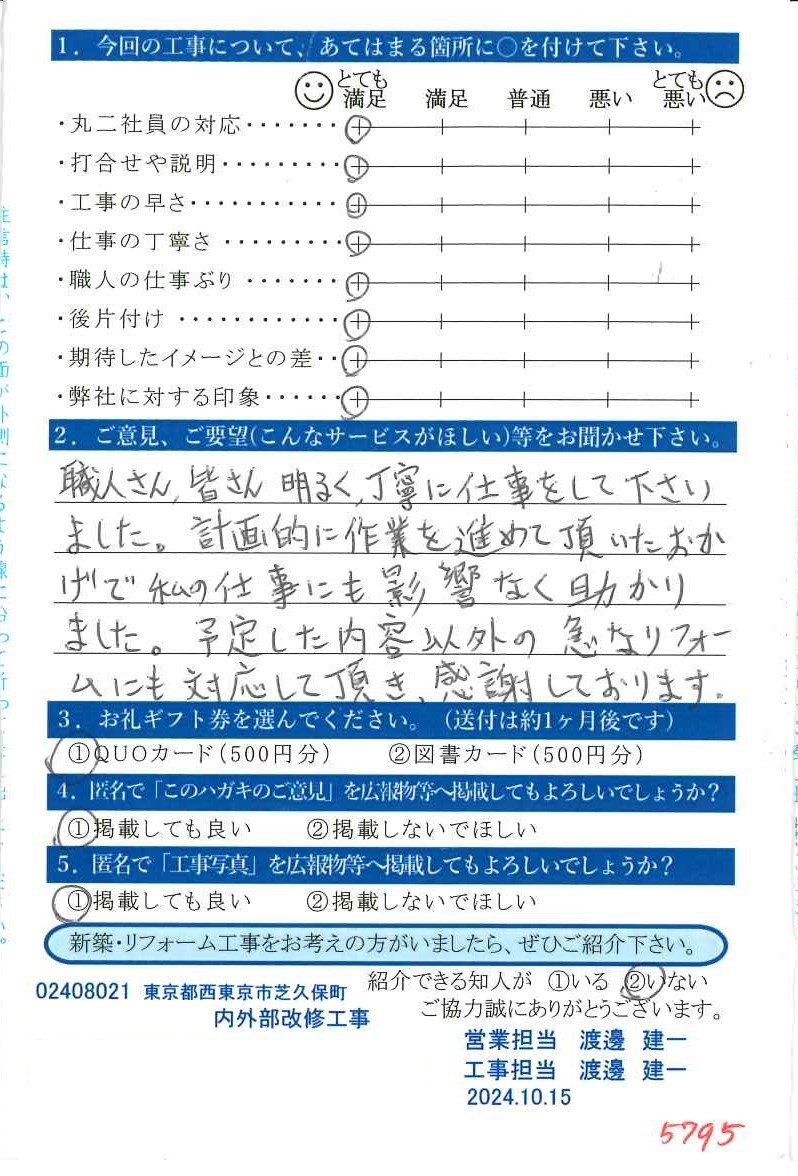 1．今回の工事について、あてはまる箇所に○を付けて下さい。
とても満足 満足 普通 悪い とても悪い
・丸二社員の対応・・・・・・・
・打合せや説明・・・・・・・・・
・工事の早さ・・・・・・・・・・・
・仕事の丁寧さ ・・・・・・・・・
・職人の仕事ぶり ・・・・・・・
・後片付け ・・・・・・・・・・・・
・期待したイメージとの差・・
・弊社に対する印象・・・・・・
2．ご意見、ご要望(こんなサービスがほしい)等をお聞かせ下さい。
職人さん、皆さん 明るく、丁寧に仕事をして下さい
ました。計画的に作業を進めて頂いたおか
げで私の仕事にも影響なく助かり
ました。予定した内容以外の急なリフォー
ムにも対応して頂き、感謝しております。
3．お礼ギフト券を選んでください。（送付は約1ヶ月後です）
①QUOカード(500円分) ②図書カード(500円分)
4．匿名で「このハガキのご意見」を広報物等へ掲載してもよろしいでしょうか?
①掲載しても良い ②掲載しないでほしい
5．匿名で「工事写真」を広報物等へ掲載してもよろしいでしょうか?
①掲載しても良い ②掲載しないでほしい
新築・リフォーム工事をお考えの方がいましたら、ぜひご紹介下さい。
紹介できる知人が ①いる ②いない
02408021 東京都西東京市芝久保町
ご協力誠にありがとうございます。
内外部改修工事
営業担当 渡邊 建一
工事担当 渡邊 建一
2024.10.15
5795